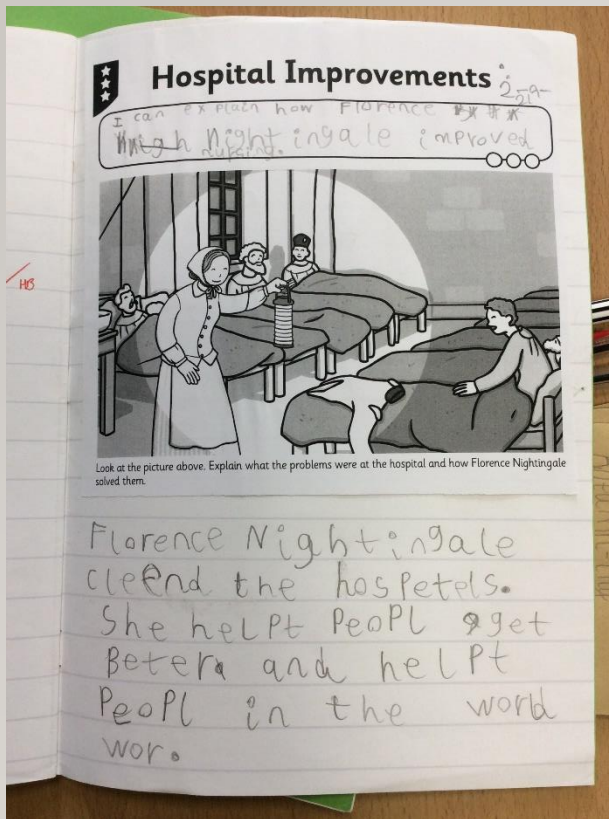 Hospital Improvements
I can explain how Florence
Nightingale improved
nursing.
HB
Look at the picture above. Explain what the problems were at the hospital and how Florence Nightingale
solved them.
Florence Nightingale
cleend the hospetels.
She helpt peopl get
Beter and helpt
peopl in the world
wor.